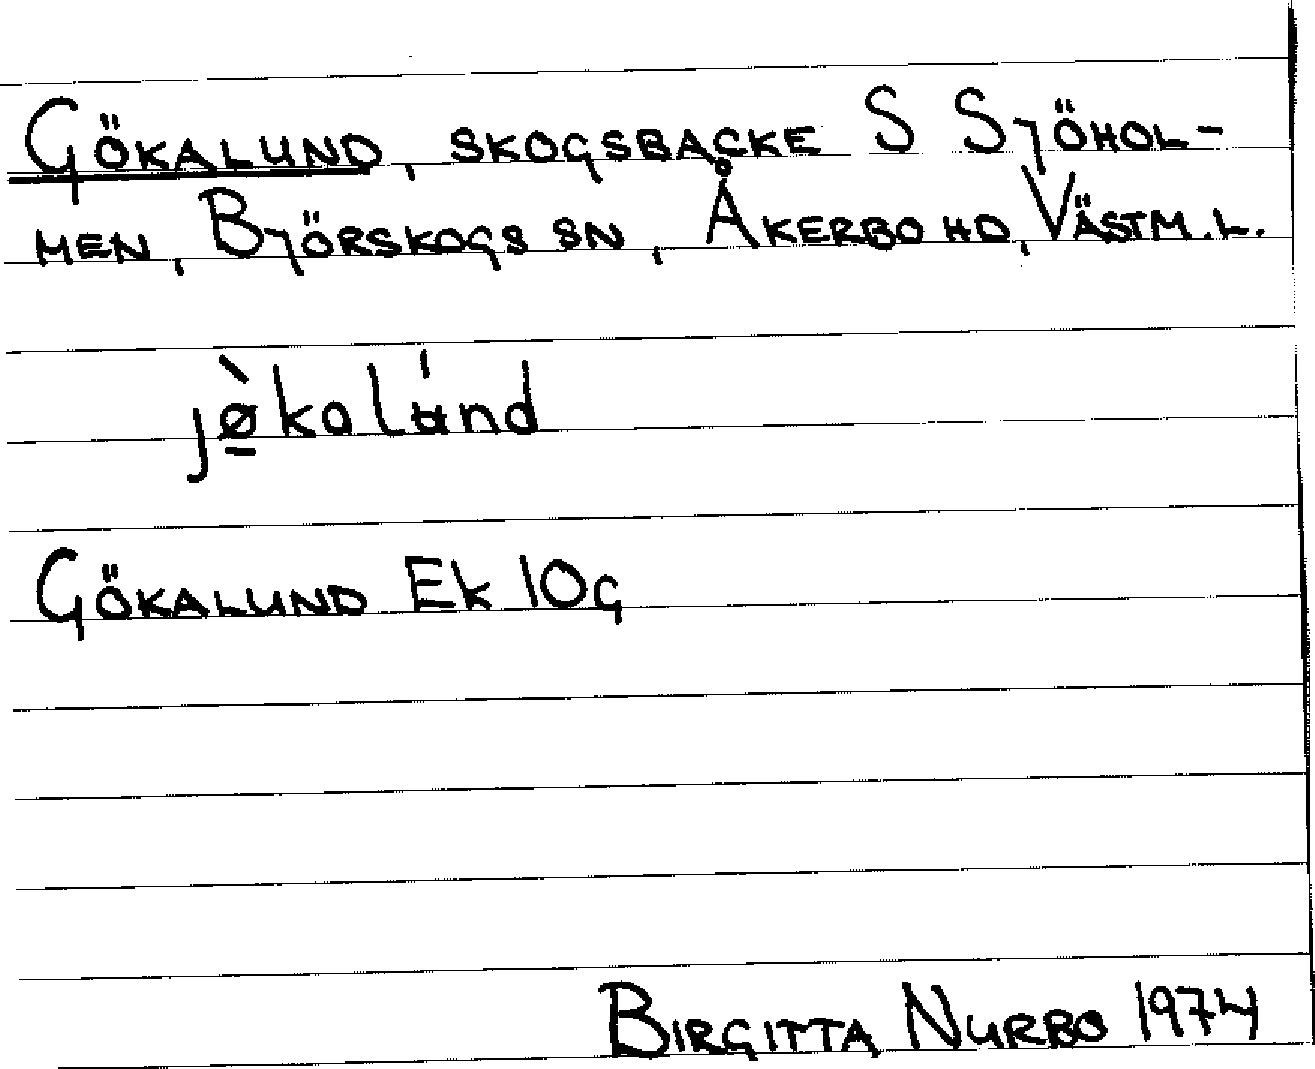 Gökalund, skogsbacke S Sjöhol-
men, Björskogs sn, Åkerbo hd, Västm. l.
jø̠̀kalʉ́nd
Gökalund Ek 10g
Birgitta Nurbo 1974